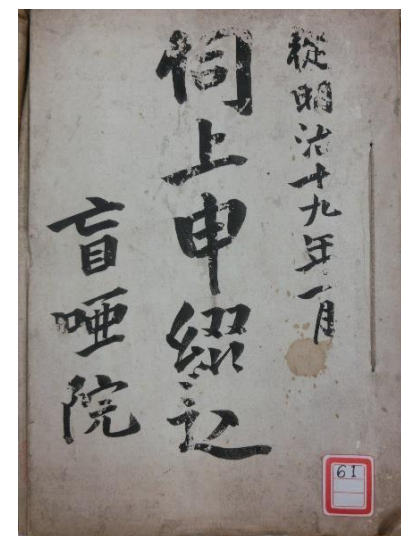 従明治十九年一月
伺上申綴込
盲唖院
61